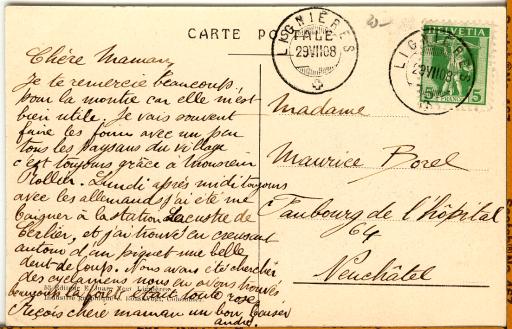 CARTE POSTALE
LIGNIÈRES
29VII08
HELVETIA
LIGNIÈRES
29VII08
5 FRANCO 5
Chère Maman,
Je te remercie beaucoup
pour la montre car elle m'est
bien utile. Je vais souvent
faire les foins avec un peu
tous les paysans du village
c'est toujours grâce à Monsieur
Rollier. Lundi après midi toujours
avec les allemands j'ai été me
baigner à la station lacustre de
Cerlier, et j'ai trouvé en creusant
autour d'un piquet une belle
dent de loup. Nous avons été chercher
des cyclamens nous en avons trouvés
la forêt en toute rose
Reçois chère maman un bon baiser
andré.
Madame
Maurice Borel
Faubourg de l'hôpital
64
Neuchâtel